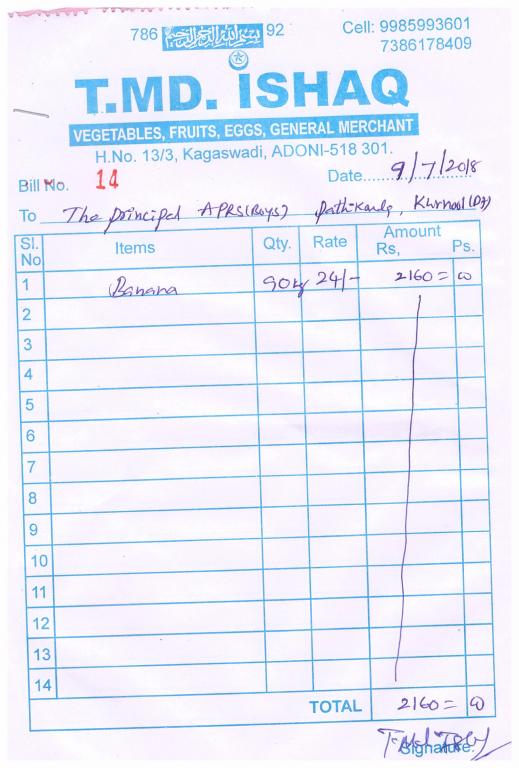 786 بسم الله الرحمن الرحيم 92
Cell: 9985993601
7386178409
T.MD. ISHAQ
VEGETABLES, FRUITS, EGGS, GENERAL MERCHANT
H.No. 13/3, Kagaswadi, ADONI-518 301.
Bill No. 14 Date......9/7/2018
To The principal APRS(Boys) Kurnool(Dt)
Sl. No Items Qty. Rate Amount Rs, Ps.
1 Banana 90kg 24/- 2160=00
2
3
4
5
6
7
8
9
10
11
12
13
14
TOTAL 2160=00
Signature.